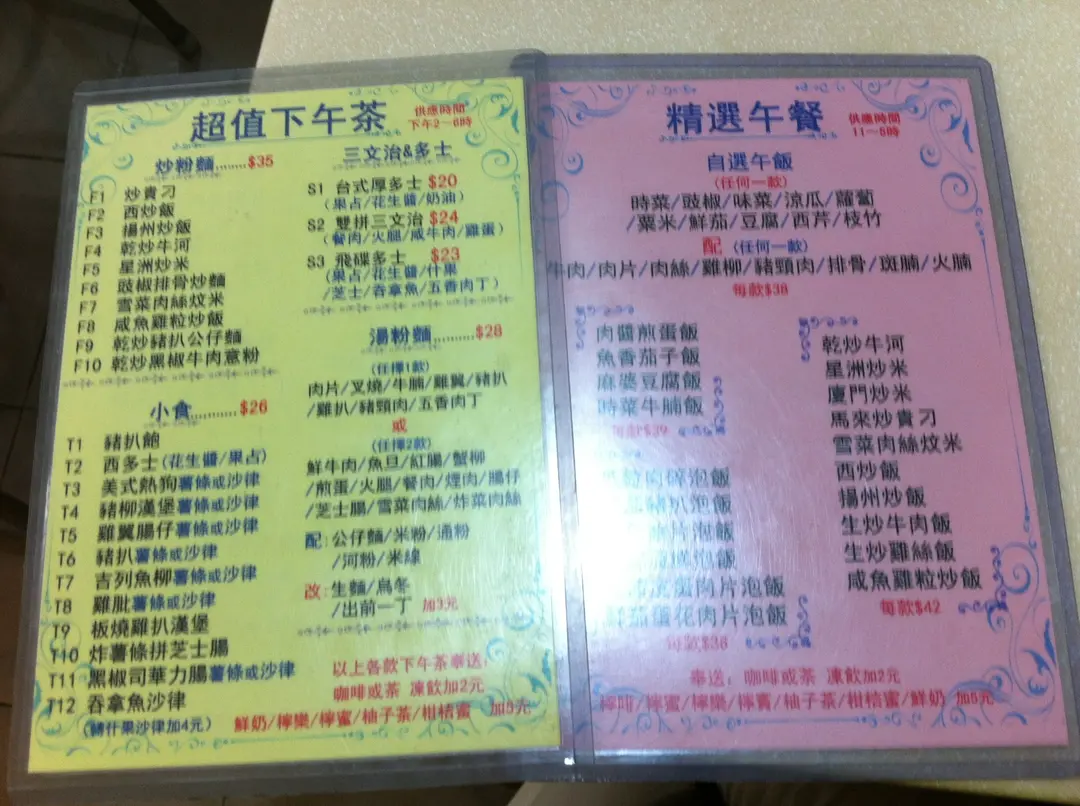 超值下午茶
供應時間
下午2～6時
炒粉麵........$35
F1 炒貴刁
F2 西炒飯
F3 揚州炒飯
F4 乾炒牛河
F5 星洲炒米
F6 豉椒排骨炒麵
F7 雪菜肉絲炆米
F8 咸魚雞粒炒飯
F9 乾炒豬扒公仔麵
F10 乾炒黑椒牛肉意粉
小食............$26
T1 豬扒飽
T2 西多士(花生醬/果占)
T3 美式熱狗薯條或沙律
T4 豬柳漢堡薯條或沙律
T5 雞翼腸仔薯條或沙律
T6 豬扒薯條或沙律
T7 吉列魚柳薯條或沙律
T8 雞肶薯條或沙律
T9 板燒雞扒漢堡
T10 炸薯條拼芝士腸
T11 黑椒司華力腸薯條或沙律
T12 吞拿魚沙律
(轉什果沙律加4元)
三文治&多士
S1 台式厚多士 $20
(果占/花生醬/奶油)
S2 雙拼三文治 $24
(餐肉/火腿/咸牛肉/雞蛋)
S3 飛碟多士 $23
(果占/花生醬/什果
/芝士/吞拿魚/五香肉丁)
湯粉麵..........$28
(任擇1款)
肉片/叉燒/牛腩/雞翼/豬扒
/雞扒/豬頸肉/五香肉丁
或
(任擇2款)
鮮牛肉/魚旦/紅腸/蟹柳
/煎蛋/火腿/餐肉/煙肉/腸仔
/芝士腸/雪菜肉絲/炸菜肉絲
配:公仔麵/米粉/通粉
/河粉/米線
改:生麵/烏冬
/出前一丁 加3元
以上各款下午茶奉送:
咖啡或茶 凍飲加2元
鮮奶/檸樂/檸蜜/柚子茶/柑桔蜜 加5元
精選午餐
供應時間
11～5時
自選午飯
(任何一款)
時菜/豉椒/味菜/涼瓜/蘿蔔
/粟米/鮮茄/豆腐/西芹/枝竹
配 (任何一款)
牛肉/肉片/肉絲/雞柳/豬頸肉/排骨/斑腩/火腩
每款$38
肉醬煎蛋飯
魚香茄子飯
麻婆豆腐飯
時菜牛腩飯
每款$39
肉碎泡飯
豬扒泡飯
片泡飯
泡飯
肉片泡飯
鮮茄蛋花肉片泡飯
每款$38
乾炒牛河
星洲炒米
廈門炒米
馬來炒貴刁
雪菜肉絲炆米
西炒飯
揚州炒飯
生炒牛肉飯
生炒雞絲飯
咸魚雞粒炒飯
每款$42
奉送:咖啡或茶 凍飲加2元
檸啡/檸蜜/檸樂/檸賓/柚子茶/柑桔蜜/鮮奶 加5元